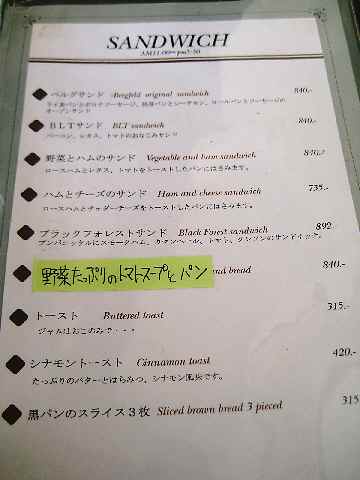 SANDWICH
AM11:00～pm5:30
ベルグサンド Bergfeld original sandwich 840.-
オープンサンド
BLTサンド BLT sandwich 840.-
ベーコン、レタス、トマトのおなじみサンド
野菜とハムのサンド Vegetable and ham sandwich 840.-
ロースハムとレタス、トマトをトーストしたパンにはさみます。
ハムとチーズのサンド Ham and cheese sandwich 735.-
ロースハムとチェダーチーズをトーストしたパンにはさみます。
ブラックフォレストサンド Black Forest sandwich 892.-
野菜たっぷりのトマトスープとパン and bread 840.-
トースト Buttered toast 315.-
ジャムはおこのみで・・・
シナモントースト Cinnamon toast 420.-
たっぷりのバターとはちみつ、シナモン風味です。
黒パンのスライス3枚 Sliced brown bread 3 pieced 315